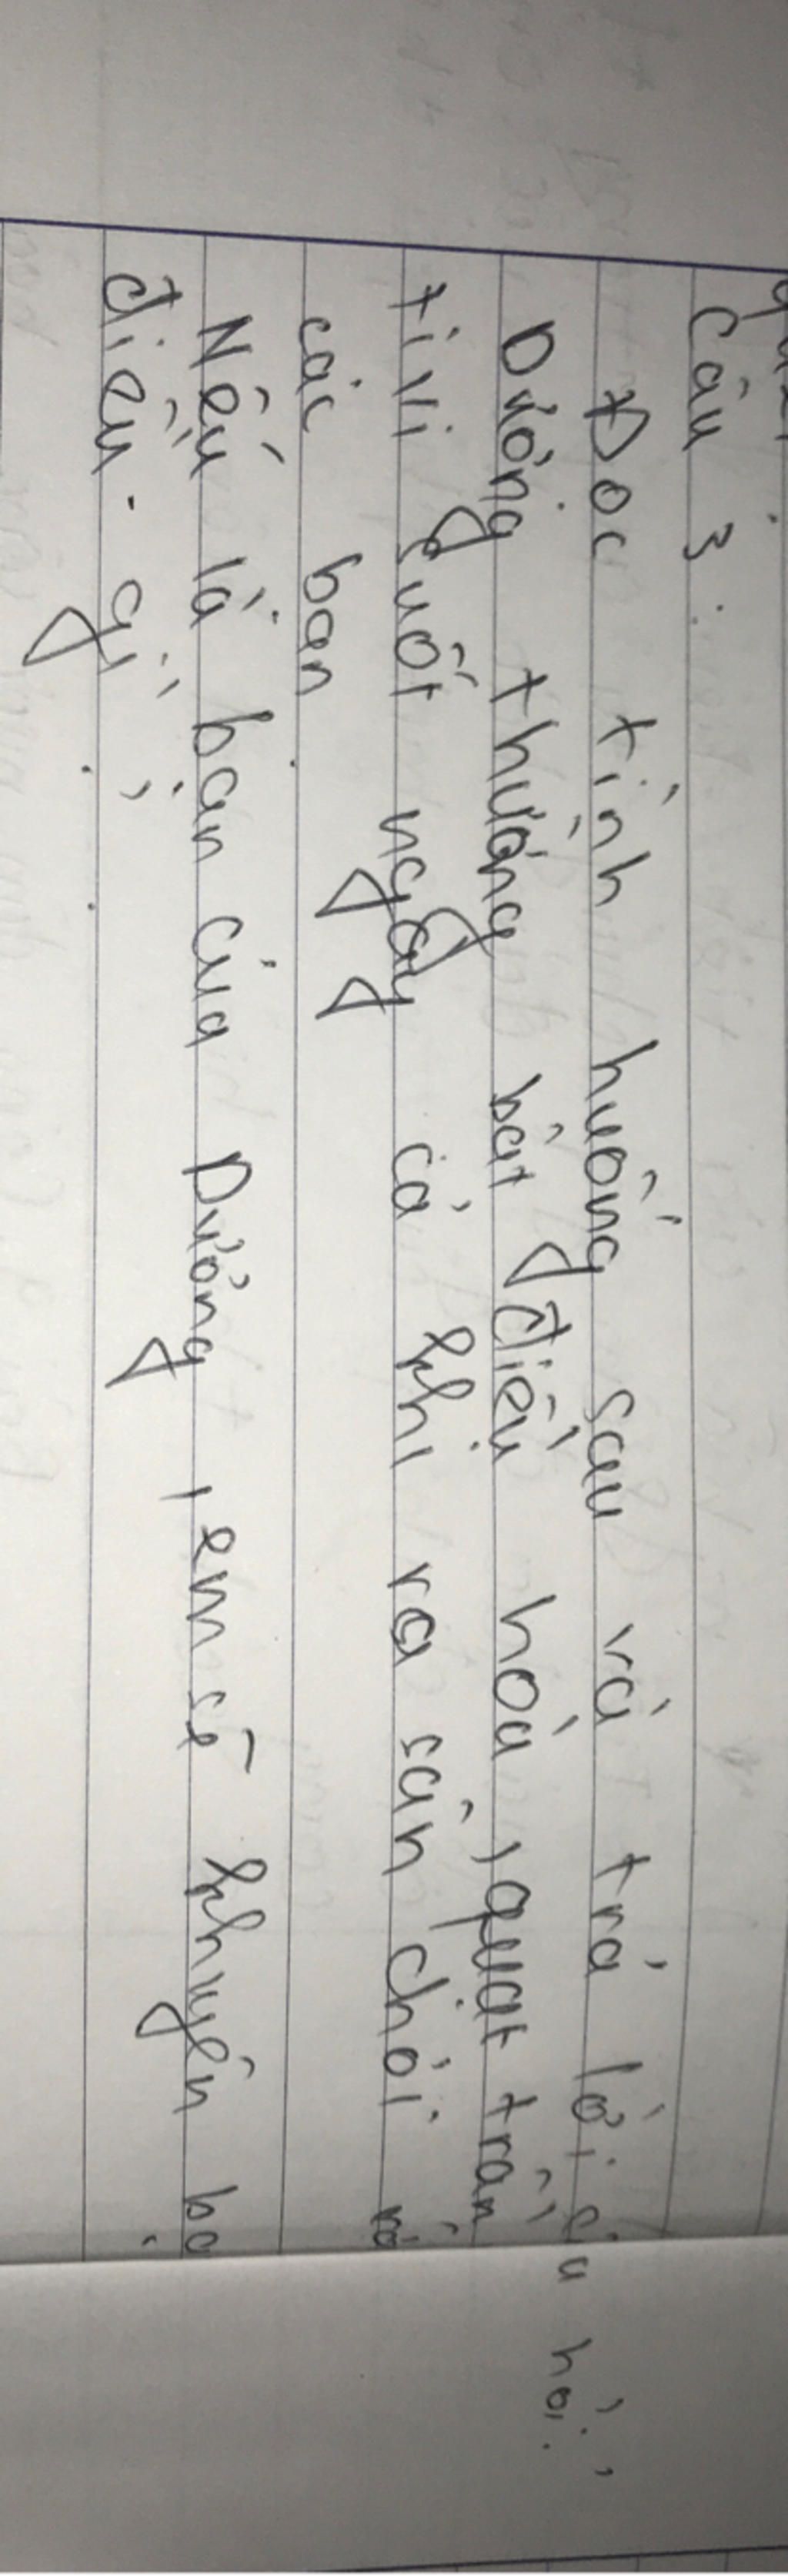 Câu 3:
Đọc tình huống sau và trả lời câu hỏi:
Dương thường bật điều hoà, quạt trần
ti vi suốt ngày cả khi ra sân chơi với
các bạn.
Nếu là bạn của Dương, em sẽ khuyên bạ
điều gì?